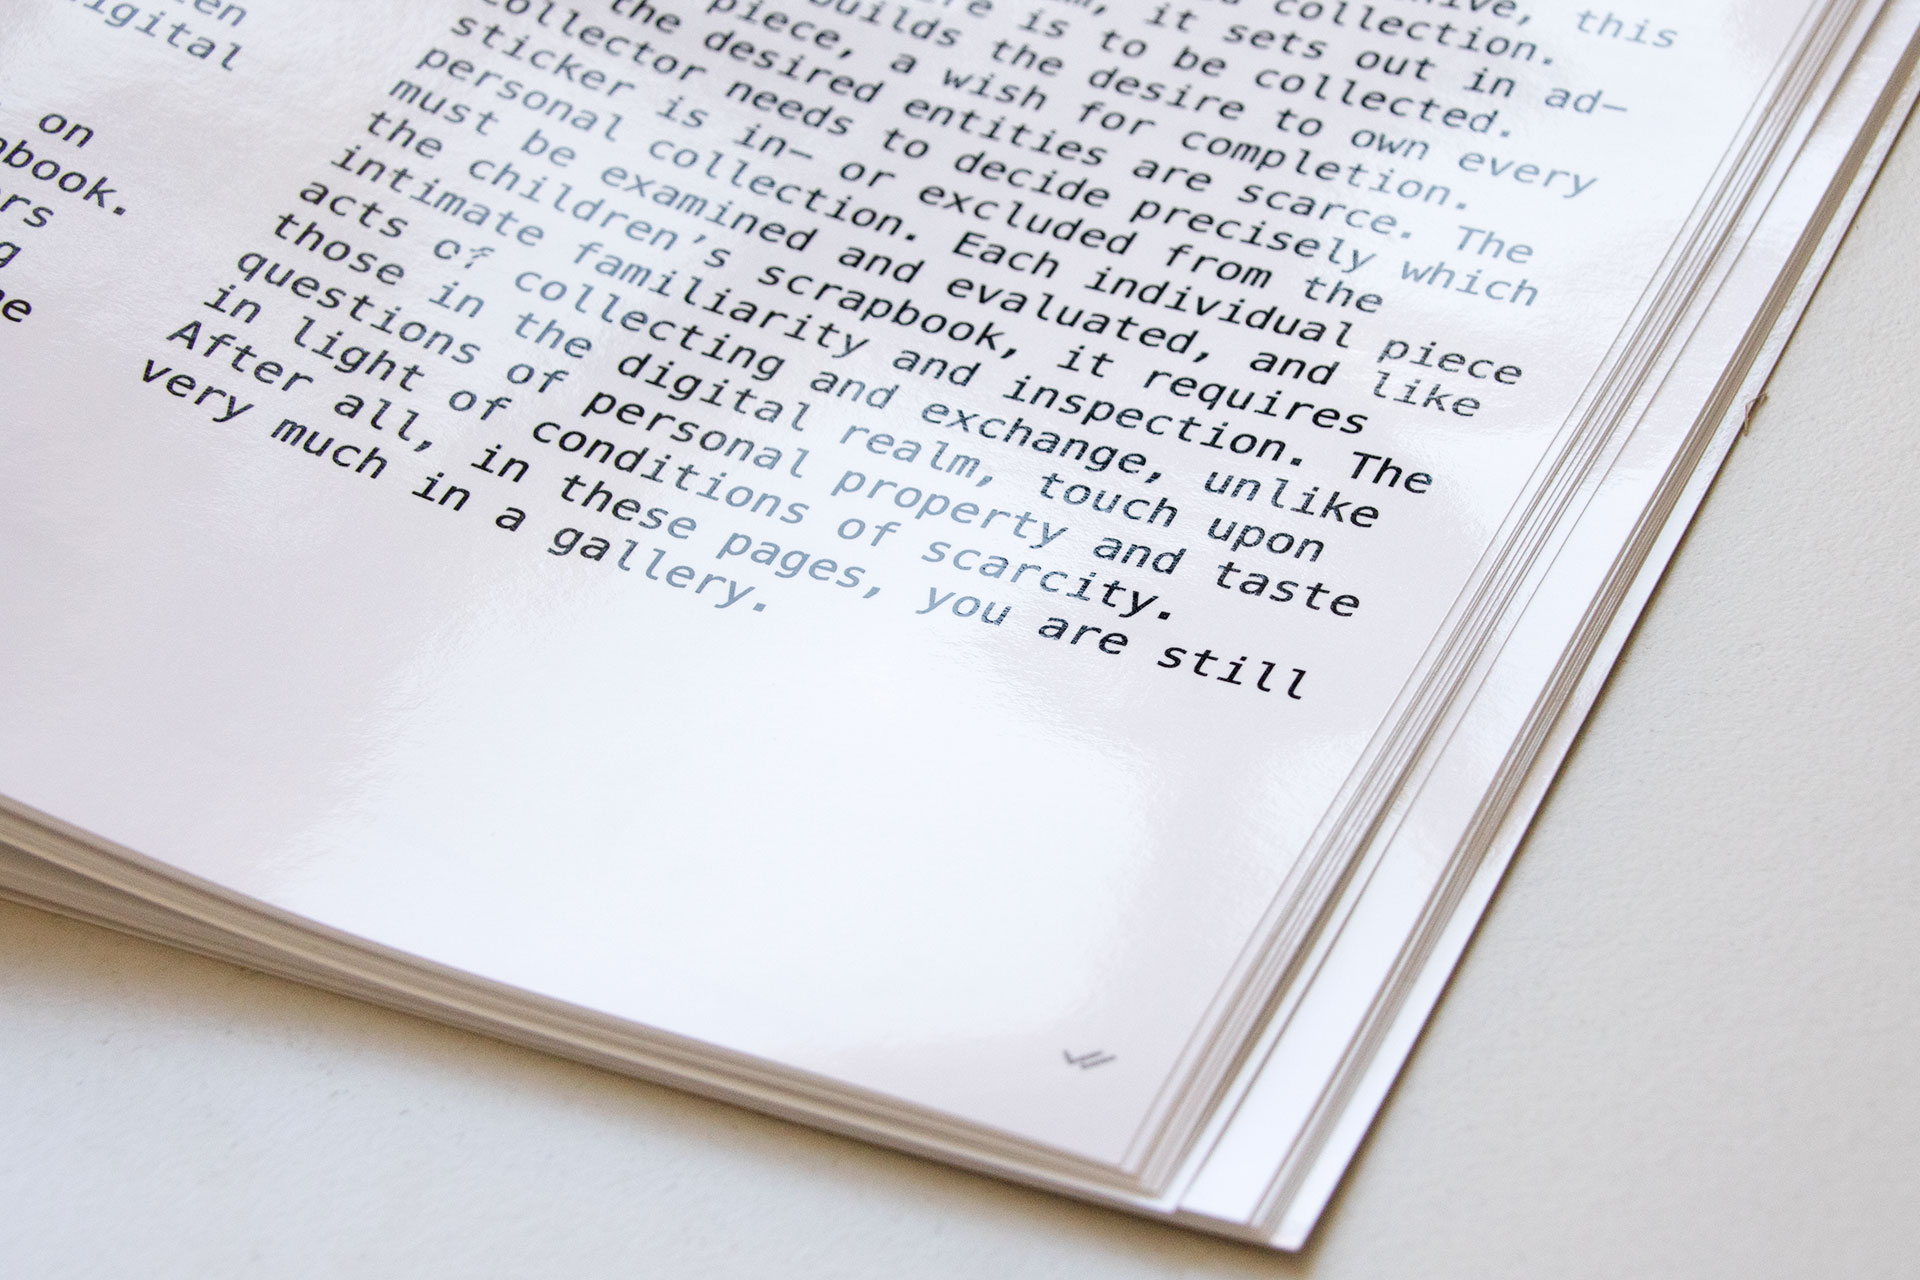 on
this
collection.
it sets out in ad–
is to be collected.
builds the desire to own every
piece, a wish for completion.
the desired entities are scarce. The
collector needs to decide precisely which
sticker is in– or excluded from the
personal collection. Each individual piece
must be examined and evaluated, and like
the children’s scrapbook, it requires
intimate familiarity and inspection. The
acts of collecting and exchange, unlike
those in the digital realm, touch upon
questions of personal property and taste
in light of conditions of scarcity.
After all, in these pages, you are still
very much in a gallery.